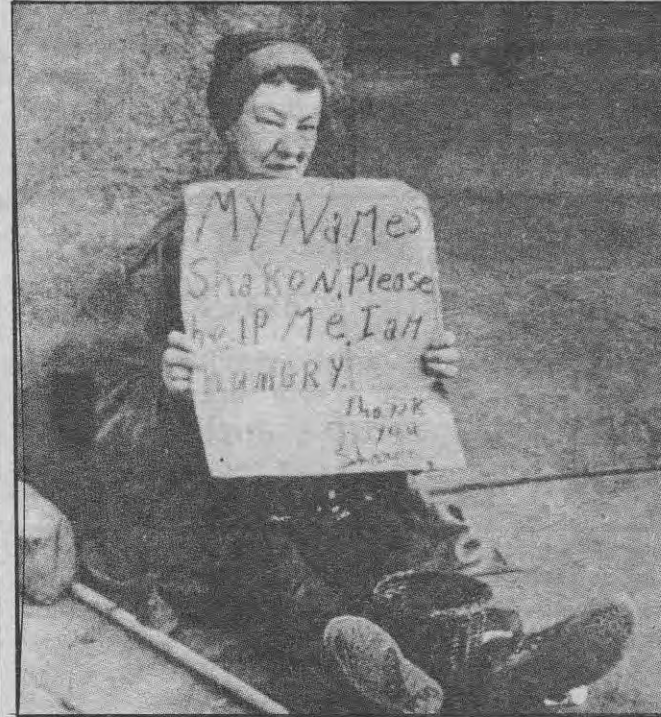 MY NaMes
ShaRoN, Please
help Me. I aM
HumGRY.
Thank
You
Sharon